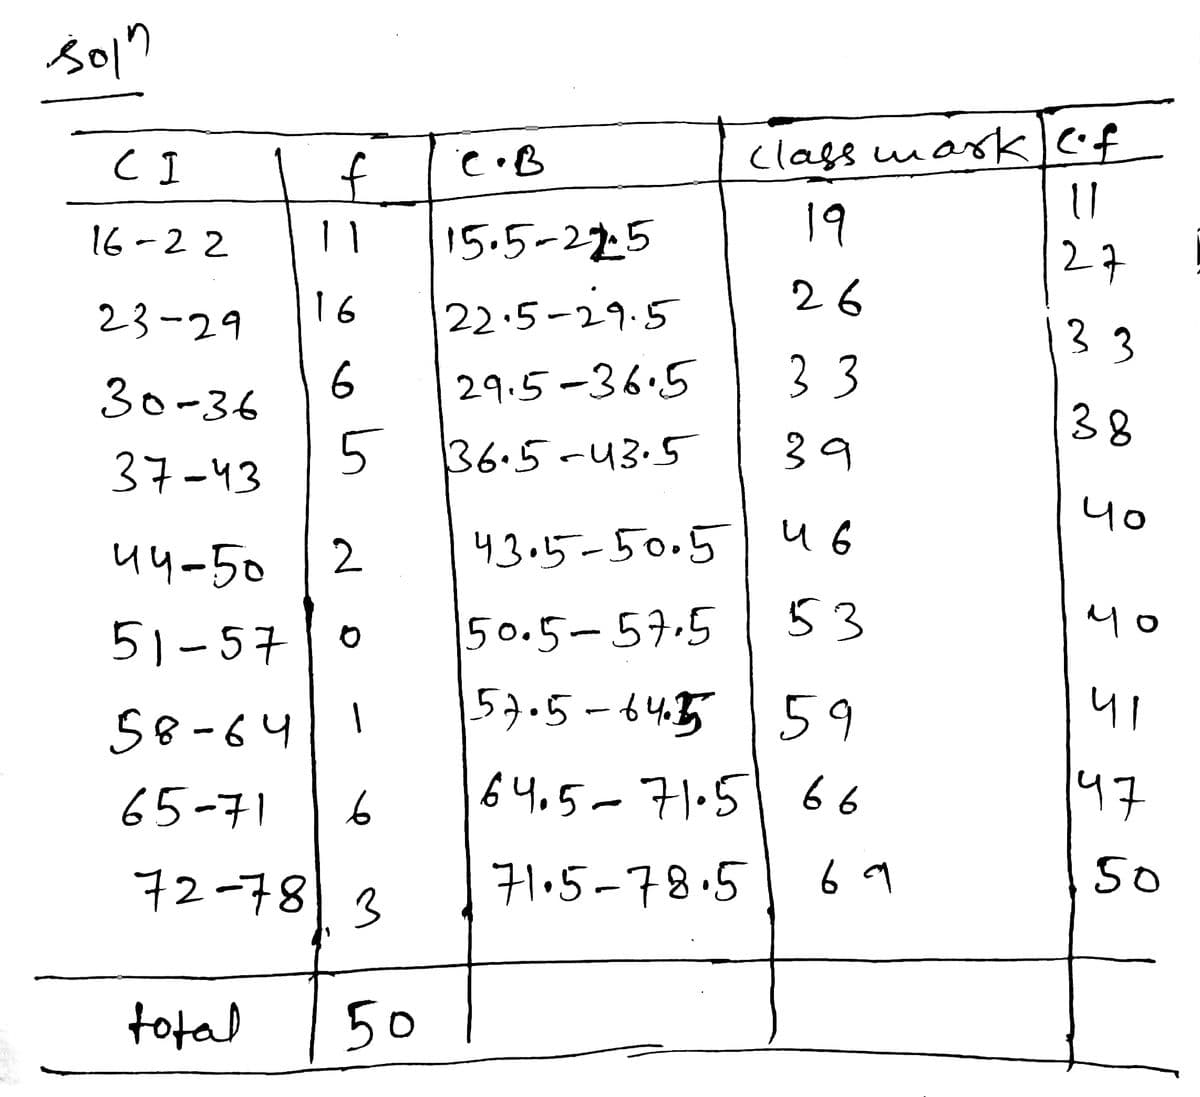 soln
CI f C.B class mark C.f
16-22 11 15.5-22.5 19 11
23-29 16 22.5-29.5 26 27
30-36 6 29.5-36.5 33 33
37-43 5 36.5-43.5 39 38
44-50 2 43.5-50.5 46 40
51-57 0 50.5-57.5 53 40
58-64 1 57.5-64.5 59 41
65-71 6 64.5-71.5 66 47
72-78 3 71.5-78.5 69 50
total 50